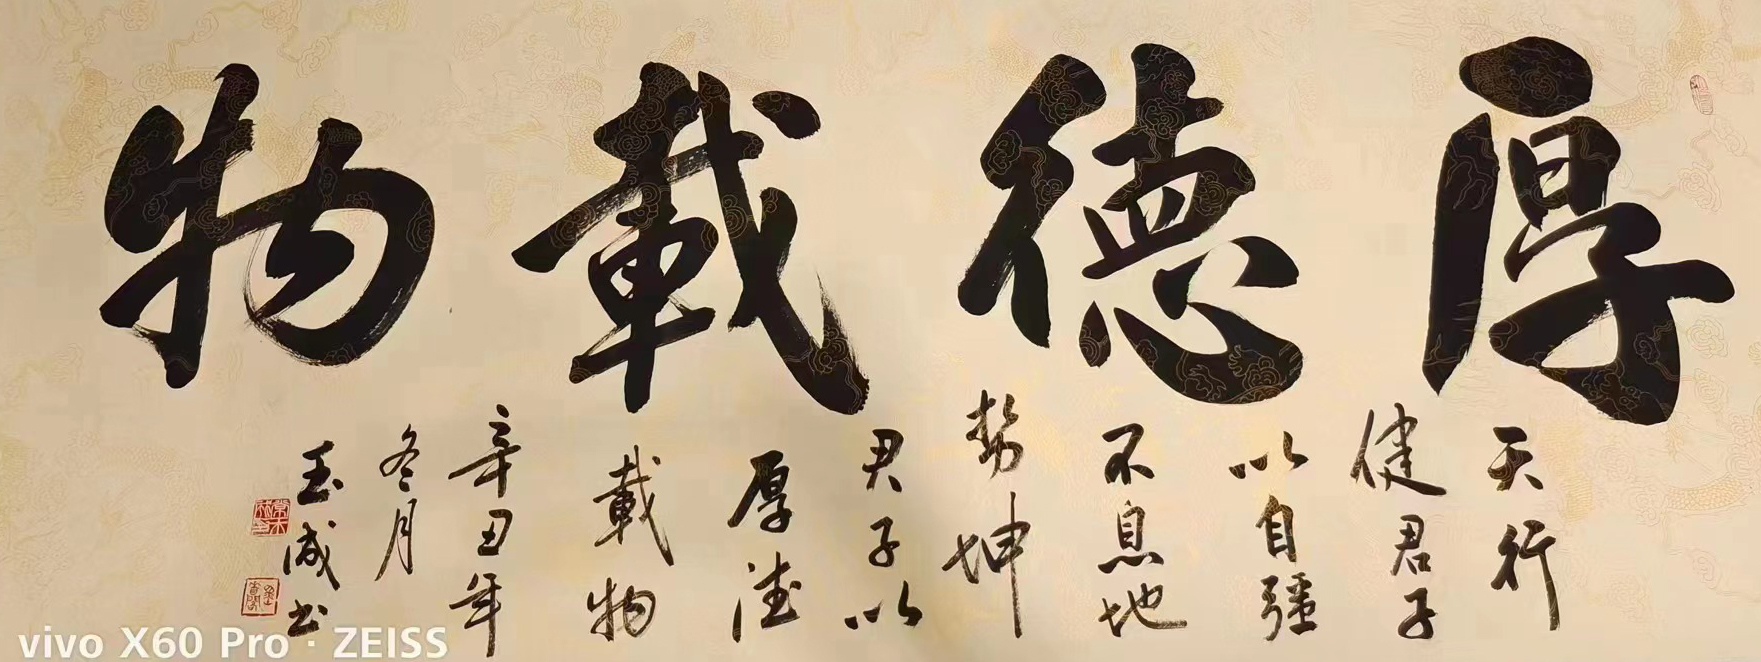 厚德載物
天行
健君子
以自彊
不息地
勢坤
君子以
厚德
載物
辛丑年
冬月
玉成书
vivo X60 Pro · ZEISS